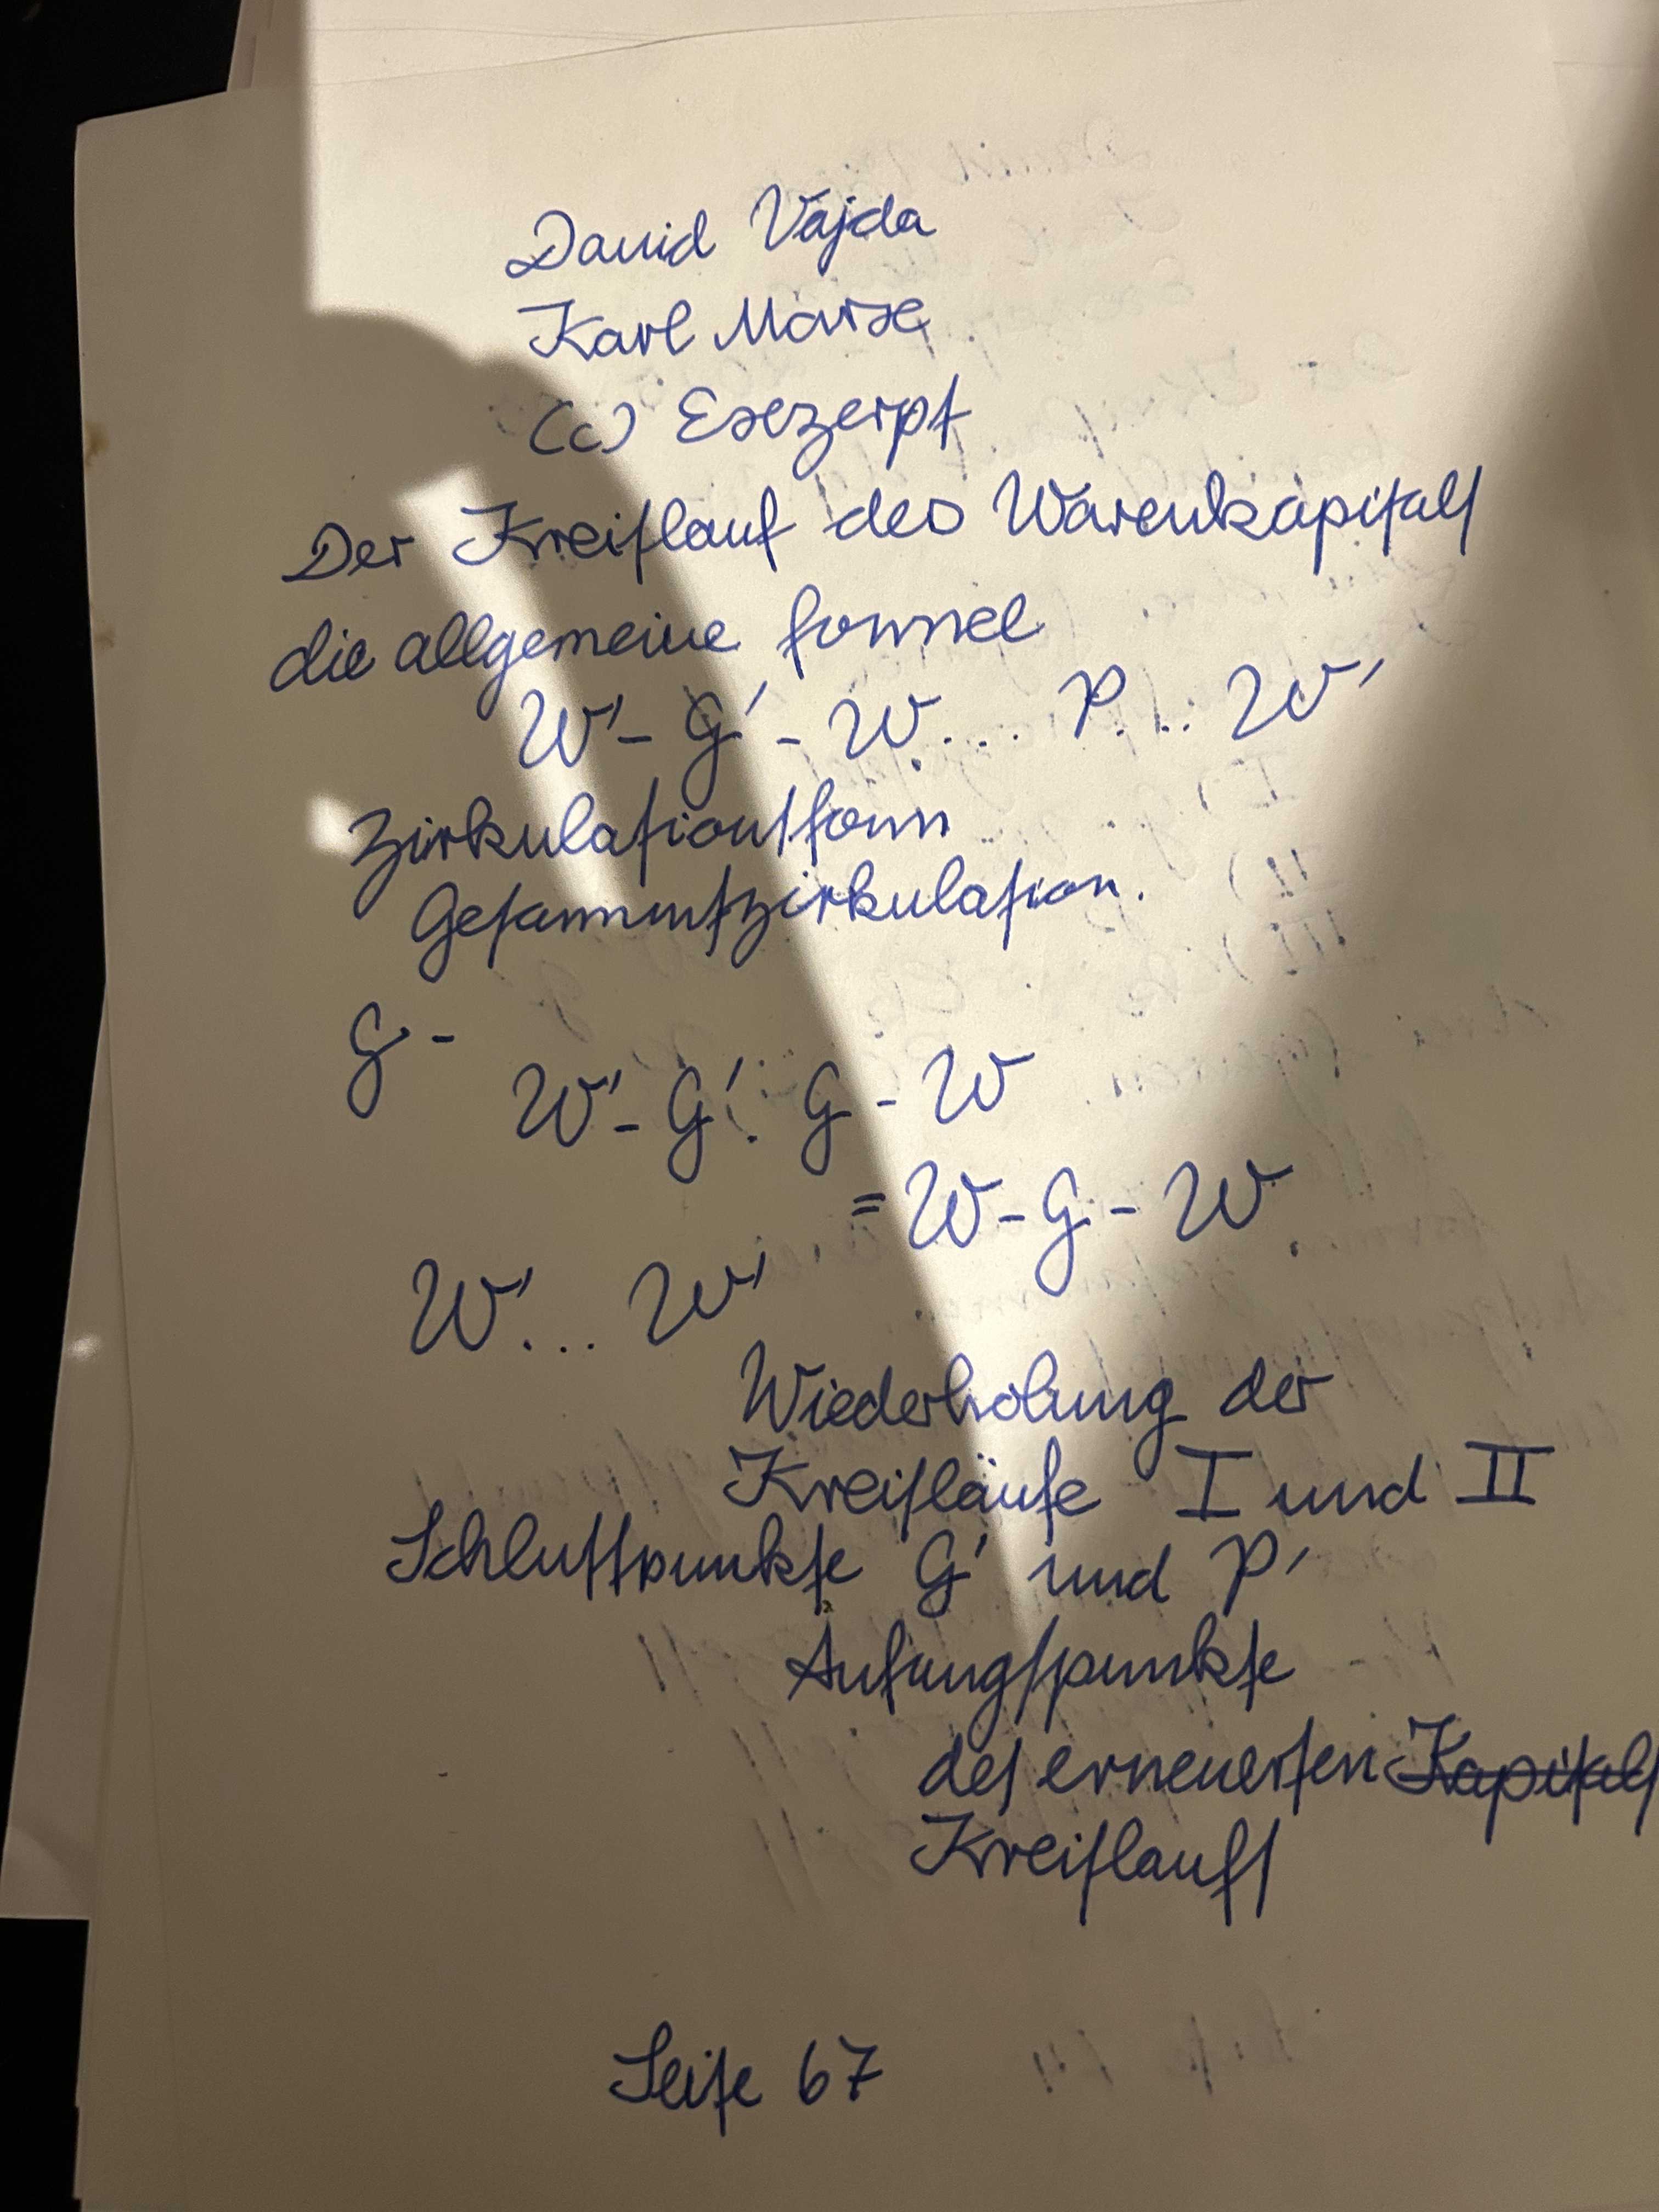 David Vajda
Karl Marx
(c) Exzerpt
Der Kreiſlauf des Warenkapitalſ
die allgemeine formel
W' - G' - W ... P ... W'
Zirkulationſform
Geſammtzirkulation.
G -
W' - G'. G - W
= W - G - W
W' ... W'
Wiederholung der
Kreiſläufe I und II
Schluſſpunkte G' und P'
Anfangſpunkte
deſ erneuerten ~~Kapitalſ~~
Kreiſlaufſ
Seite 67